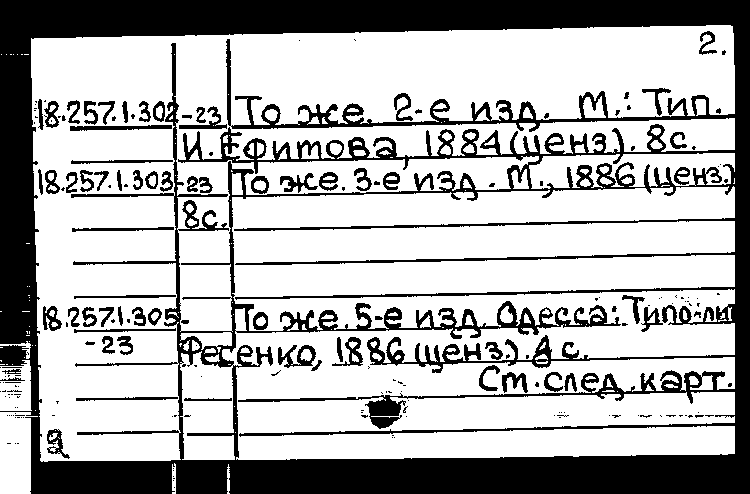 2.
18.257.1.302-23 То же. 2-е изд. М.: Тип.
И. Ефитова, 1884 (ценз.). 8с.
18.257.1.303-23 То же. 3-е изд. М., 1886 (ценз.)
8с.
18.257.1.305- То же. 5-е изд. Одесса: Типо-лит
-23 Фесенко, 1886 (ценз.). с.
См. след. карт.